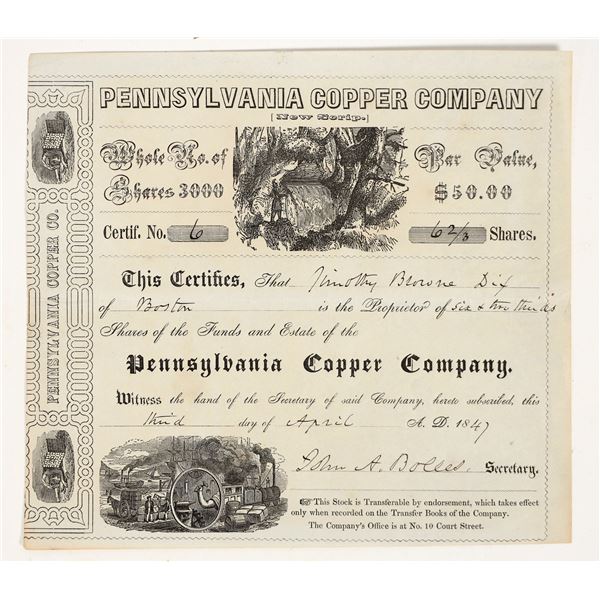 PENNSYLVANIA COPPER COMPANY
[New Scrip.]
Whole No. of
Shares 3000
Par Value,
$50.00
Certif. No. 6
6 2/3 Shares.
This Certifies, That Timothy Browne Dix
of Boston is the Proprietor of Six & two thirds
Shares of the Funds and Estate of the
Pennsylvania Copper Company.
Witness the hand of the Secretary of said Company, hereto subscribed, this
third day of April A. D. 1847
John A. Bolles, Secretary.
☞ This Stock is Transferable by endorsement, which takes effect
only when recorded on the Transfer Books of the Company.
The Company's Office is at No. 10 Court Street.
PENNSYLVANIA COPPER CO.